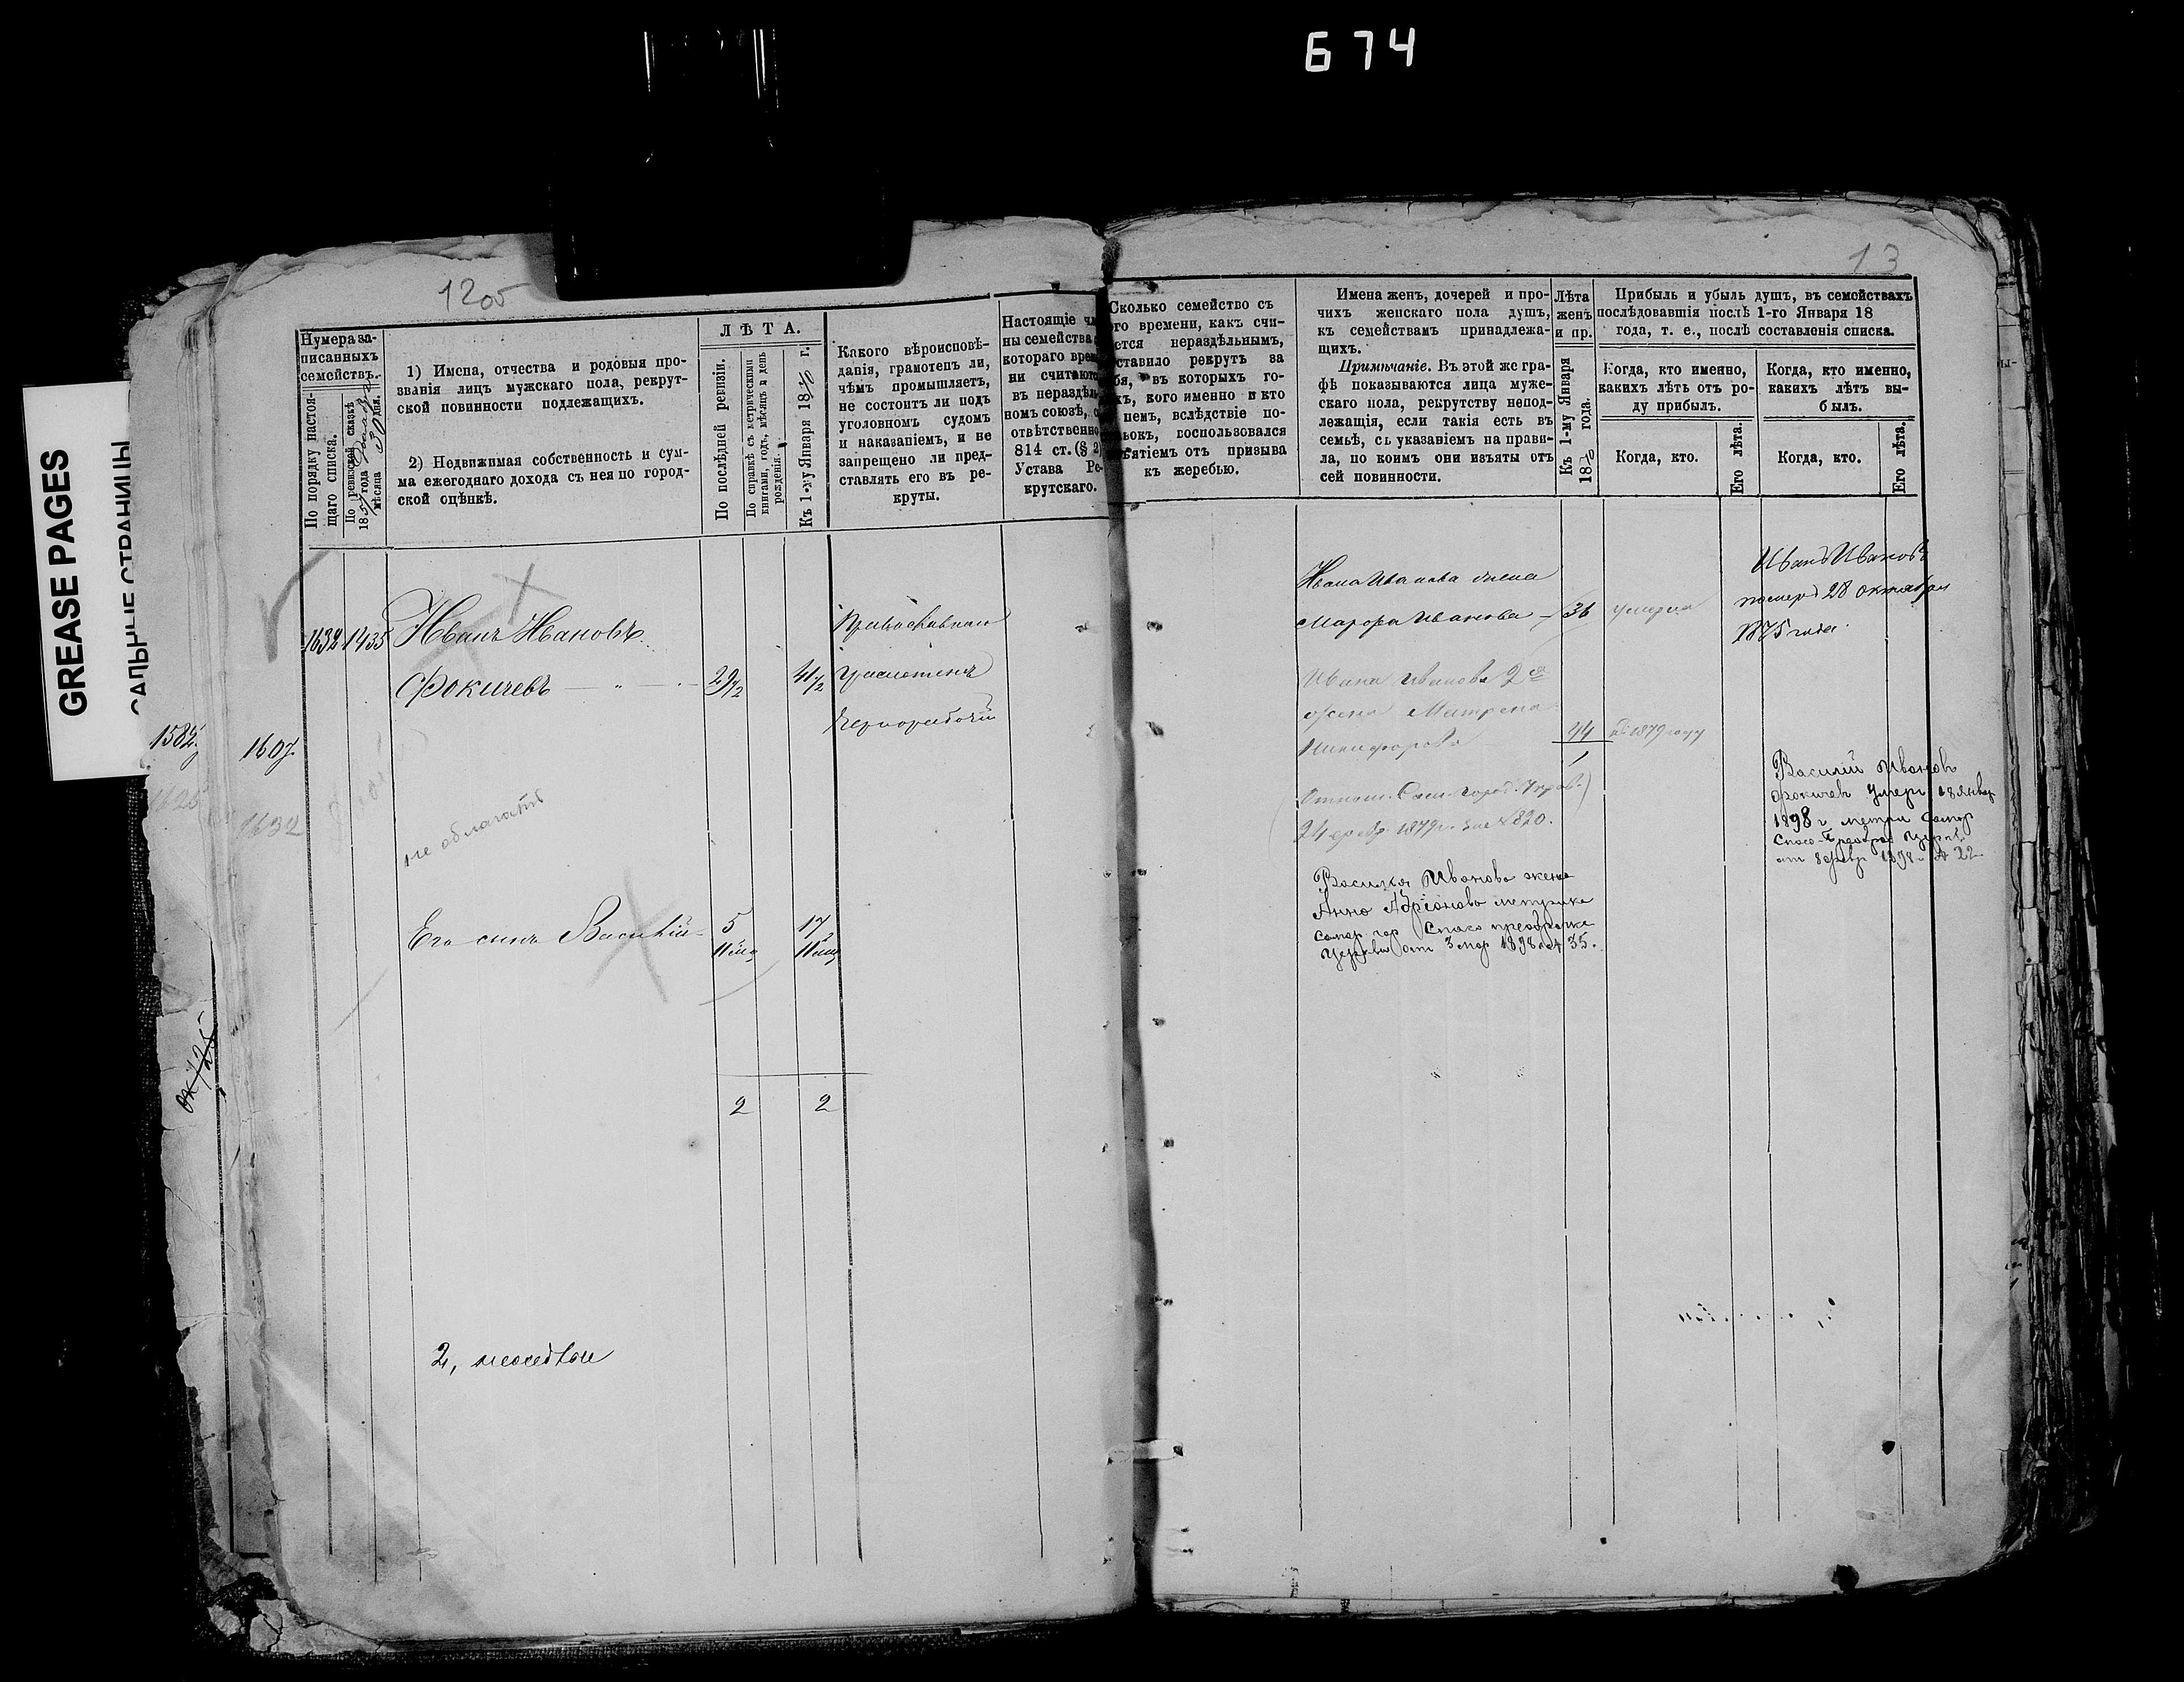 674
GREASE PAGES
САЛЬНЫЕ СТРАНИЦЫ
1205
13
Нумера за-
писанныхъ
семействъ.
По порядку настоя-
щаго списка.
По ревизской сказкѣ
18 года
мѣсяца 30 дня.
1) Имена, отчества и родовыя про-
званія лицъ мужскаго пола, рекрут-
ской повинности подлежащихъ.
2) Недвижимая собственность и сум-
ма ежегоднаго дохода съ нея по город-
ской оцѣнкѣ.
ЛѢТА.
По послѣдней ревизіи.
По справкѣ съ метрическими
книгами, годъ, мѣсяцъ и день
рожденія.
Къ 1-му Января 1870 г.
Какого вѣроисповѣ-
данія, грамотенъ ли,
чѣмъ промышляетъ,
не состоитъ ли подъ
уголовномъ судомъ
и наказаніемъ, и не
запрещено ли пред-
ставлять его въ ре-
круты.
Настоящіе чл
ны семейства
котораго вре
ни считают
въ нераздѣл
номъ союзѣ,
отвѣтственно
814 ст. (§ 2)
Устава Ре-
крутскаго.
Сколько семейство съ
го времени, какъ счи-
ется нераздѣльнымъ,
ставило рекрутъ за
бя, въ которыхъ го-
хъ, кого именно и кто
немъ, вслѣдствіе по-
ьокъ, воспользовался
ятіемъ отъ призыва
къ жеребью.
Имена женъ, дочерей и про-
чихъ женскаго пола душъ,
къ семействамъ принадлежа-
щихъ.
Примѣчаніе. Въ этой же гра-
фѣ показываются лица муже-
скаго пола, рекрутству непод-
лежащія, если такія есть въ
семьѣ, съ указаніемъ на прави-
ла, по коимъ они изъяты отъ
сей повинности.
Лѣта
женъ
и пр.
Къ 1-му Января
1870 года.
Прибыль и убыль душъ, въ семействахъ
послѣдовавшія послѣ 1-го Января 18
года, т. е., послѣ составленія списка.
Когда, кто именно,
какихъ лѣтъ отъ ро-
ду прибылъ.
Когда, кто именно,
какихъ лѣтъ вы-
былъ.
Когда, кто.
Его лѣта.
Когда, кто.
Его лѣта.
1632 1435 Иванъ Ивановъ
Фокичевъ 29½ 41½
Православнаго
Грамотенъ
Чернорабочій
1582
1607
1632
не облагать
Его сынъ Василій 5 17
2 2
2,
Ивана Иванова жена
Иванова 36 умерла
Ивана Иванова 2я
жена Матрена
Никифорова 44 въ 1879 году
24 февр. 1879 г. за № 820.
Василія Иванова жена
Анна метрика
Самар. гор. Спасо
Церкви от 3 мар 1898 г. № 35.
Иванъ Ивановъ
померъ 28 октября
1875 года
Василій Ивановъ
Фокичевъ умеръ 18 январ
1898 г метри Самар
Спасо-Преображ церкви
от 8 февр 1898 г № 22